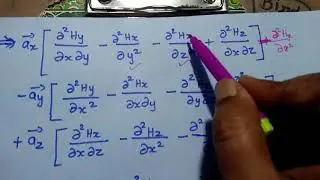 ⇒ a⃗x [ ∂²Hy/∂x∂y − ∂²Hx/∂y² − ∂²Hx/∂z + ∂²Hz/∂x∂z ] + ∂²Hx/∂x²
− a⃗y [ ∂²Hy/∂x² − ∂²Hx/∂x∂y −
+ a⃗z [ ∂²Hx/∂x∂z − ∂²Hz/∂x² −